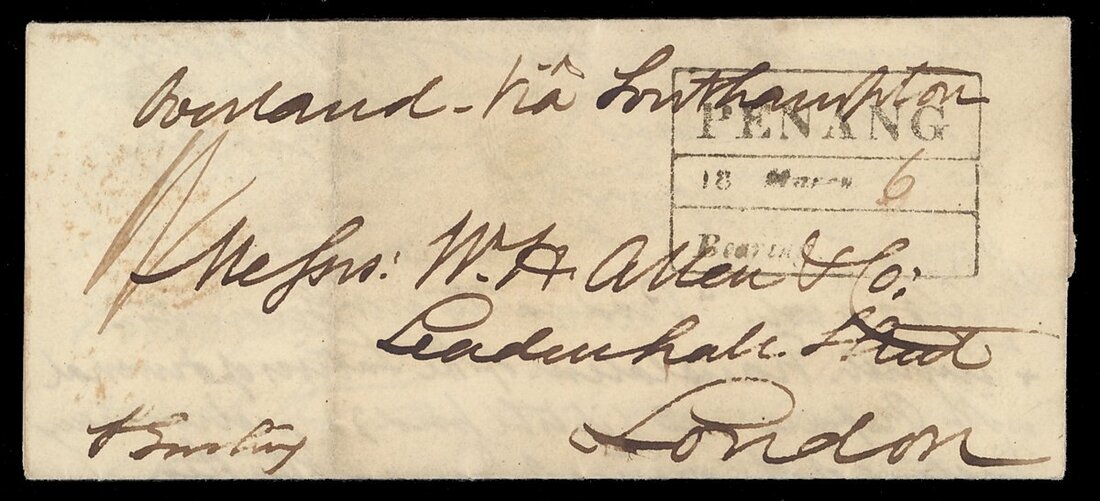 Overland - Viâ Southampton
PENANG
18 March 6
Bearing
1/
Messrs: Wm. H. Allen & Co:
Leadenhall Street
London